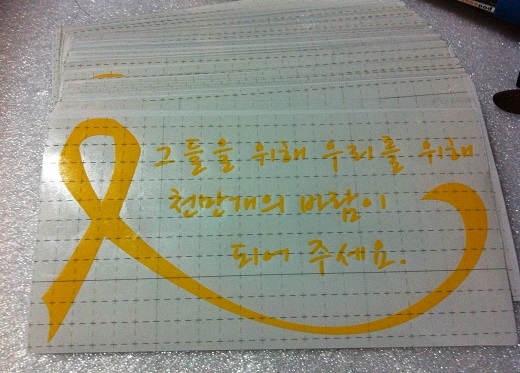 그들을 위해 우리를 위해
천만개의 바람이
되어 주세요.